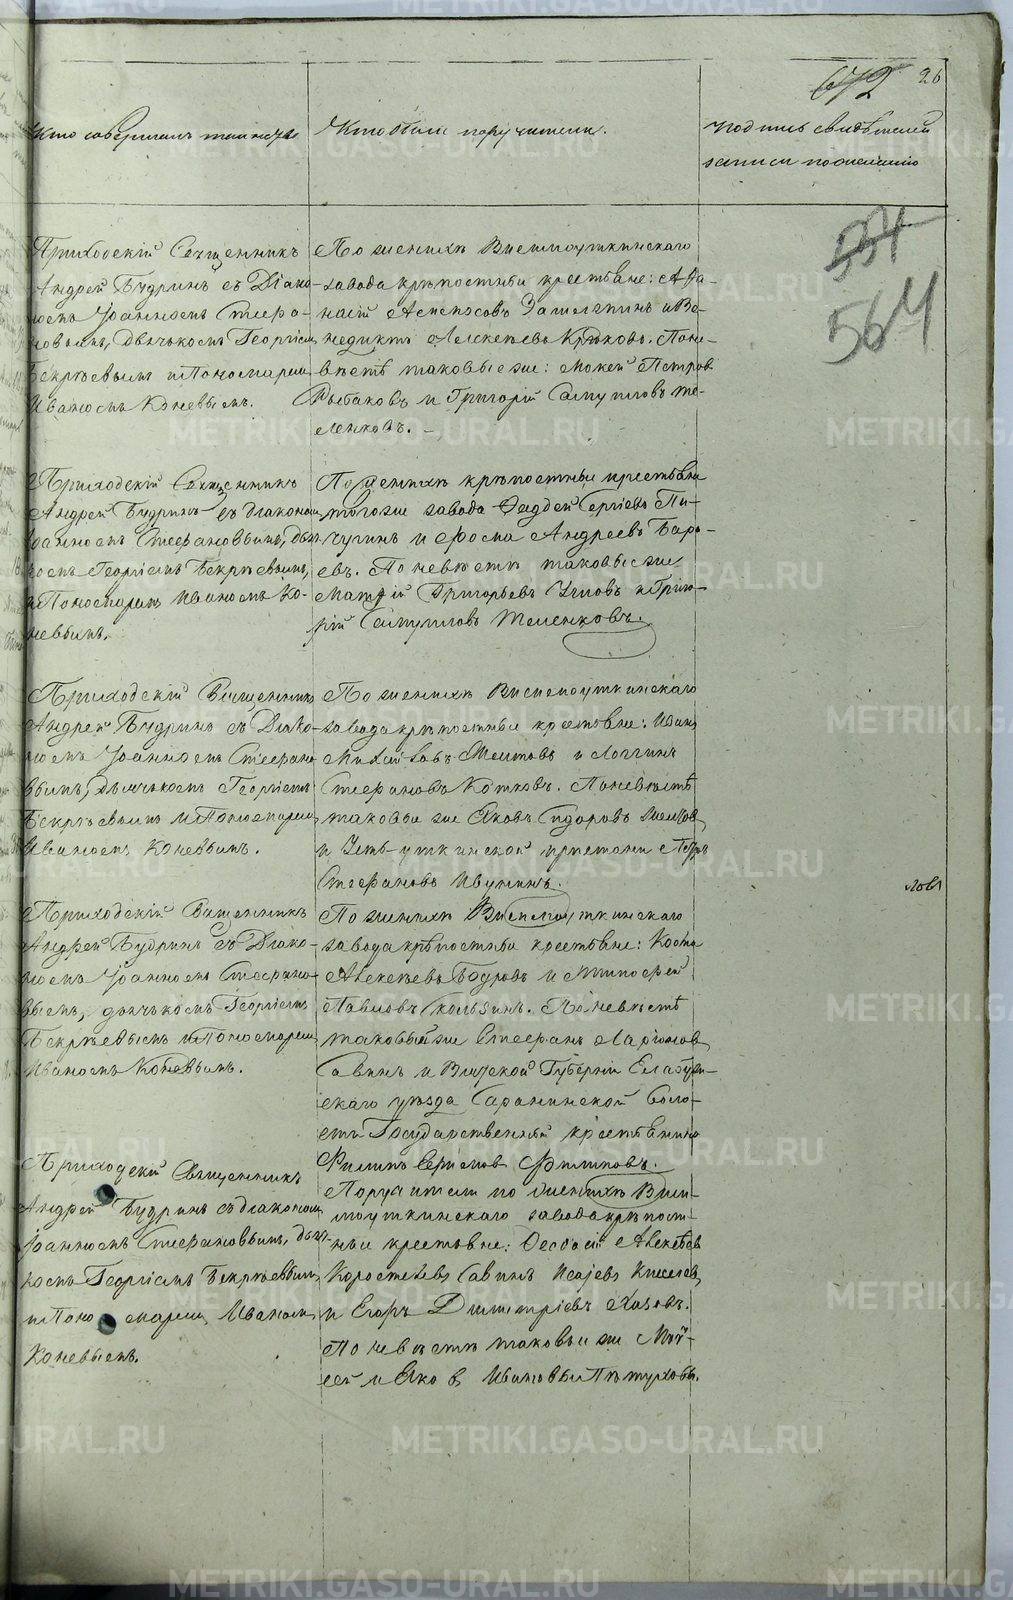 672 26
Кто совершалъ таинство
Кто были поручители.
Подпись свидѣтелей
записи по желанію
554
564
Приходскій Священникъ
Андрей Будринъ съ Діако-
номъ Іоанномъ Стефа-
новымъ, дьячькомъ Георгіем
Бекряевымъ и Пономаремъ
Иваномъ Коневымъ.
По женихѣ Висимоуткинскаго
завода крѣпостныи крестьяне: Афа-
насій
и Ве-
недиктъ Алексѣевъ Крюковъ. По не-
вѣстѣ таковые же: Мокей Петров
Рыбаковъ и Григорій Самуиловъ Те-
ленковъ.
Приходскій Священникъ
Андрей Будринъ съ діакономъ
Іоанномъ Стефановымъ, дьяч-
комъ Георгіемъ Бекряевымъ,
и Пономаремъ Иваномъ Ко-
невымъ.
По женихѣ крѣпостныи крестьяне
того же завода Фаддей Сергіевъ Пи-
чугинъ и Фома Андреевъ
По невѣстѣ таковые же
Матфій Григорьевъ и Григо-
рій Самуиловъ Теленковъ.
Приходскій Священникъ
Андрей Будринъ съ Діако-
номъ Іоанномъ Стефано-
вымъ, дьячькомъ Георгіемъ
Бекряевымъ и Пономаремъ
Иваномъ Коневымъ.
По женихѣ Висимоуткинскаго
завода крѣпостныи крестьяне: Иванъ
Михайловъ и Логгинъ
Стефановъ Котковъ. По невѣстѣ
таковыи же Яковъ Сидоровъ
и Усть-уткинской пристани Петръ
Стефановъ Ивукинъ.
Приходскій Священникъ
Андрей Будринъ съ Діако-
номъ Іоанномъ Стефано-
вымъ, дьячькомъ Георгіемъ
Бекряевымъ и Пономаремъ
Иваномъ Коневымъ.
По женихѣ Висимоуткинскаго
завода крѣпостныи крестьяне: Косма
Алексѣевъ Бодровъ и Тимофей
Павловъ По невѣстѣ
таковый же Стефанъ Ларіонов
Савинъ и Вятской Губерніи Елабуж-
скаго уѣзда волос-
ти Государственный крестьянинъ
Филипъ Филиповъ.
Приходскій Священникъ
Андрей Будринъ съ діакономъ
Іоанномъ Стефановымъ, дьяч-
комъ Георгіемъ Бекряевымъ,
и Пономаремъ Иваномъ
Коневымъ.
Поручители по женихѣ Виси-
моуткинскаго завода крѣпост-
ныи крестьяне: Алексѣев
Савинъ Исаевъ Киселев,
и Егоръ Димитріевъ Хазовъ.
По невѣстѣ таковыи же Мои-
сей и Яковъ Ивановы Пѣтуховы.
METRIKI.GASO-URAL.RU